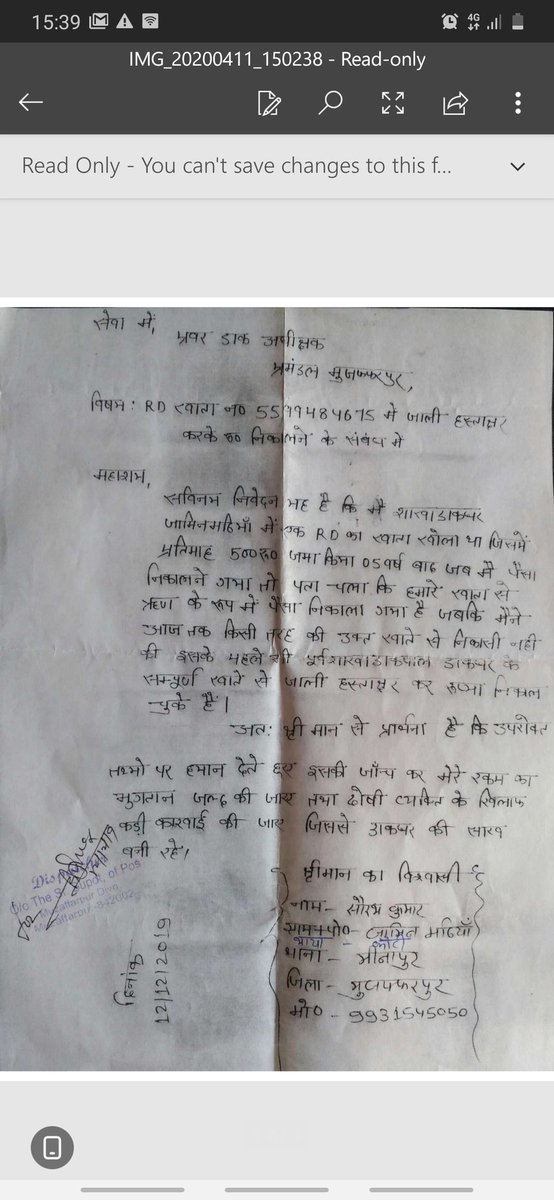 15:39
4G
IMG_20200411_150238 - Read-only
Read Only - You can't save changes to this f...
सेवा में,
प्रवर डाक अधीक्षक
प्रमंडल मुजफ्फरपुर,
विषय: RD खाता न0 में जाली हस्ताक्षर
करके रू0 निकालने के संबंध में
महाशय,
सविनय निवेदन यह है कि मैं शाखाडाकघर
जामिनमठियाँ में एक RD का खाता खोला था जिसमें
प्रतिमाह 500रू0 जमा किया 05वर्ष बाद जब मैं पैसा
निकालने गया तो पता चला कि हमारे खाता से
ऋण के रूप में पैसा निकाला गया है जबकि मैंने
आज तक किसी तरह की उक्त खाते से निकासी नही
की इसके पहले भी पूर्वशाखाडाकपाल डाकघर के
सम्पूर्ण खाते से जाली हस्ताक्षर कर रूपया निकाल
चुके हैं।
अत: श्री मान से प्रार्थना है कि उपरोक्त
तथ्यो पर ध्यान देते हुए इसकी जाँच कर मेरे रकम का
भुगतान जल्द की जाए तथा दोषी व्यक्ति के खिलाफ
कड़ी कारवाई की जाए जिससे डाकघर की साख
बनी रहे।
O/o The Supdt. of Pos
Muzaffarpur Divn.
Muzaffarpur-842002
दिनांक 12/12/2019
श्रीमान का विश्वासी
नाम- सौरभ कुमार
ग्राम+पो0- जामिन मठियाँ
भाया -
थाना- मीनापुर
जिला- मुजफ्फरपुर
मो0 - 9931545050